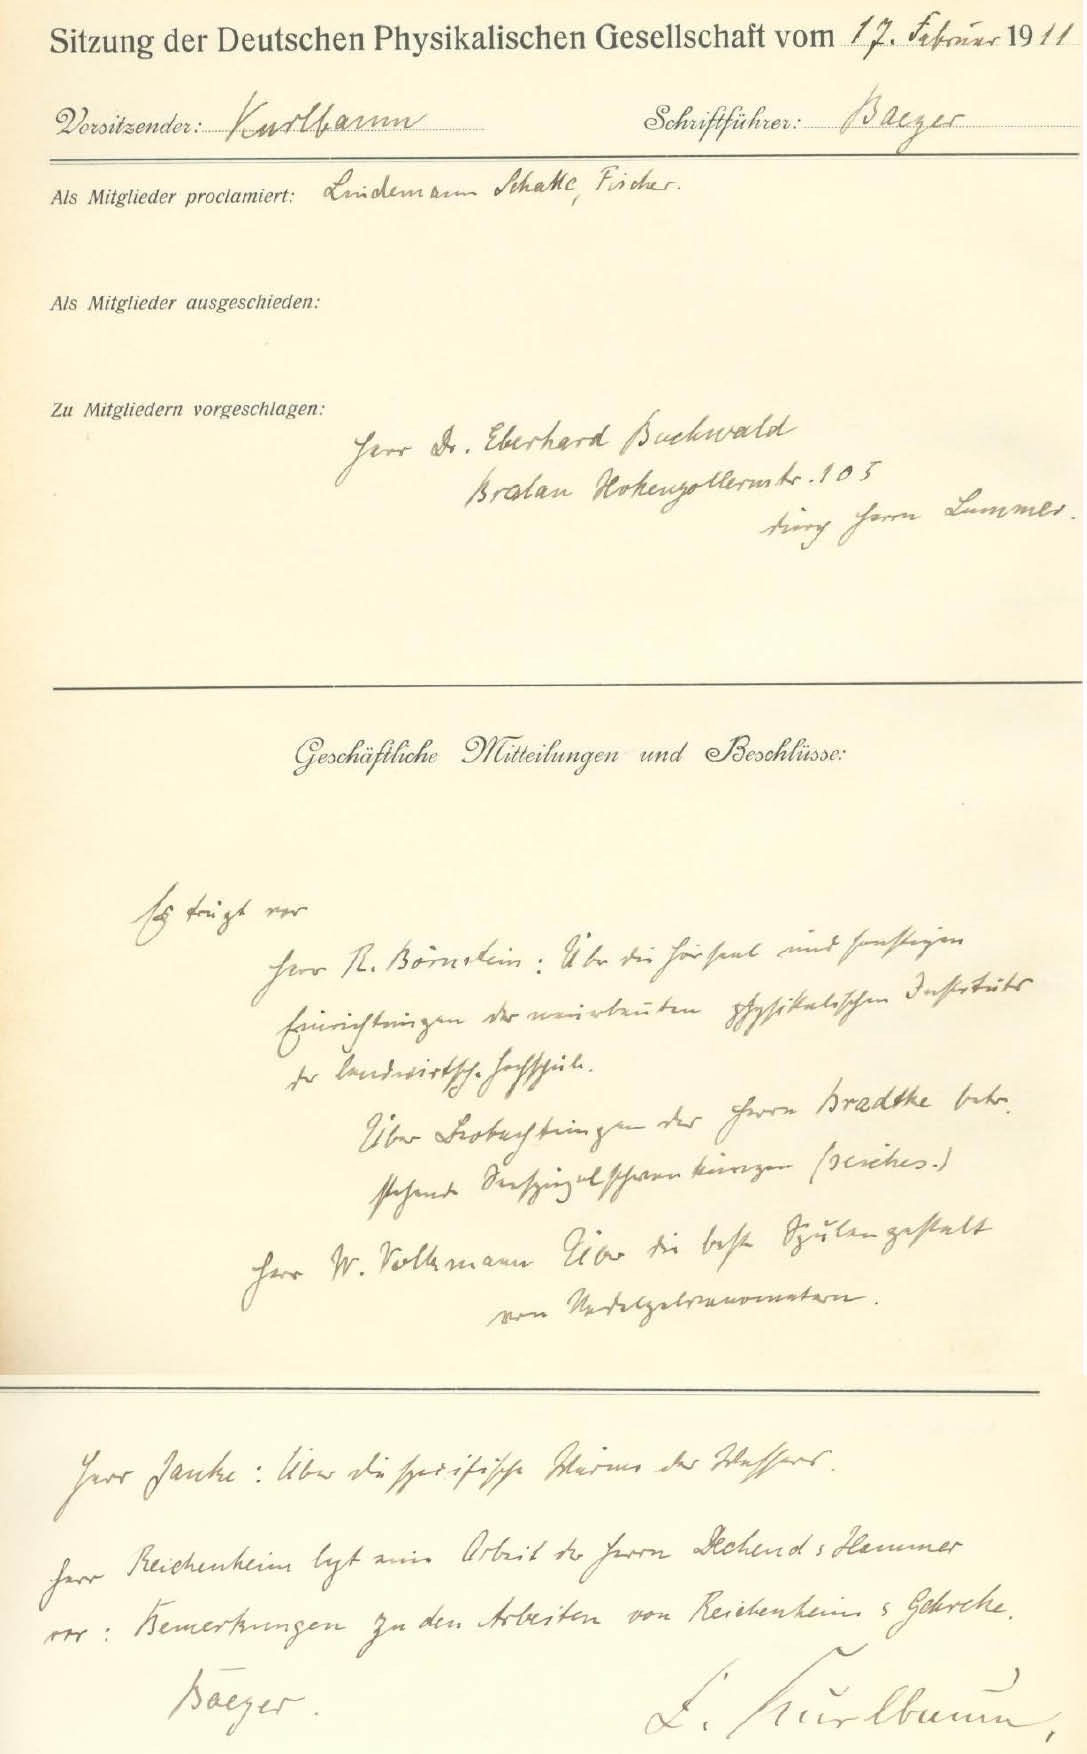 Sitzung der Deutschen Physikalischen Gesellschaft vom 17. Februar 1911
Vorsitzender: Kurlbaum Schriftführer: Baeyer
Als Mitglieder proclamiert: Lindemann Fischer.
Als Mitglieder ausgeschieden:
Zu Mitgliedern vorgeschlagen:
Herr Dr. Eberhard Buchwald
Breslau Hohenzollernstr. 105
durch Herrn Lummer.
Geschäftliche Mitteilungen und Beschlüsse:
Es trägt vor
Herr R. Börnstein: Über die Hörsaal und sonstigen
Einrichtungen des neuerbauten physikalischen Instituts
der landwirtsch. Hochschule.
Über Beobachtungen des Herrn Bradtke betr.
stehende Seespiegelschwankungen (seiches.)
Herr W. Volkmann Über die beste Spulengestalt
von Nadelgalvanometern.
Herr Janke: Über die spezifische Wärme des Wassers.
Herr Reichenheim legt eine Arbeit der Herrn Dechend & Hammer
vor: Bemerkungen zu den Arbeiten von Reichenheim & Gehrcke.
Baeyer. F. Kurlbaum.